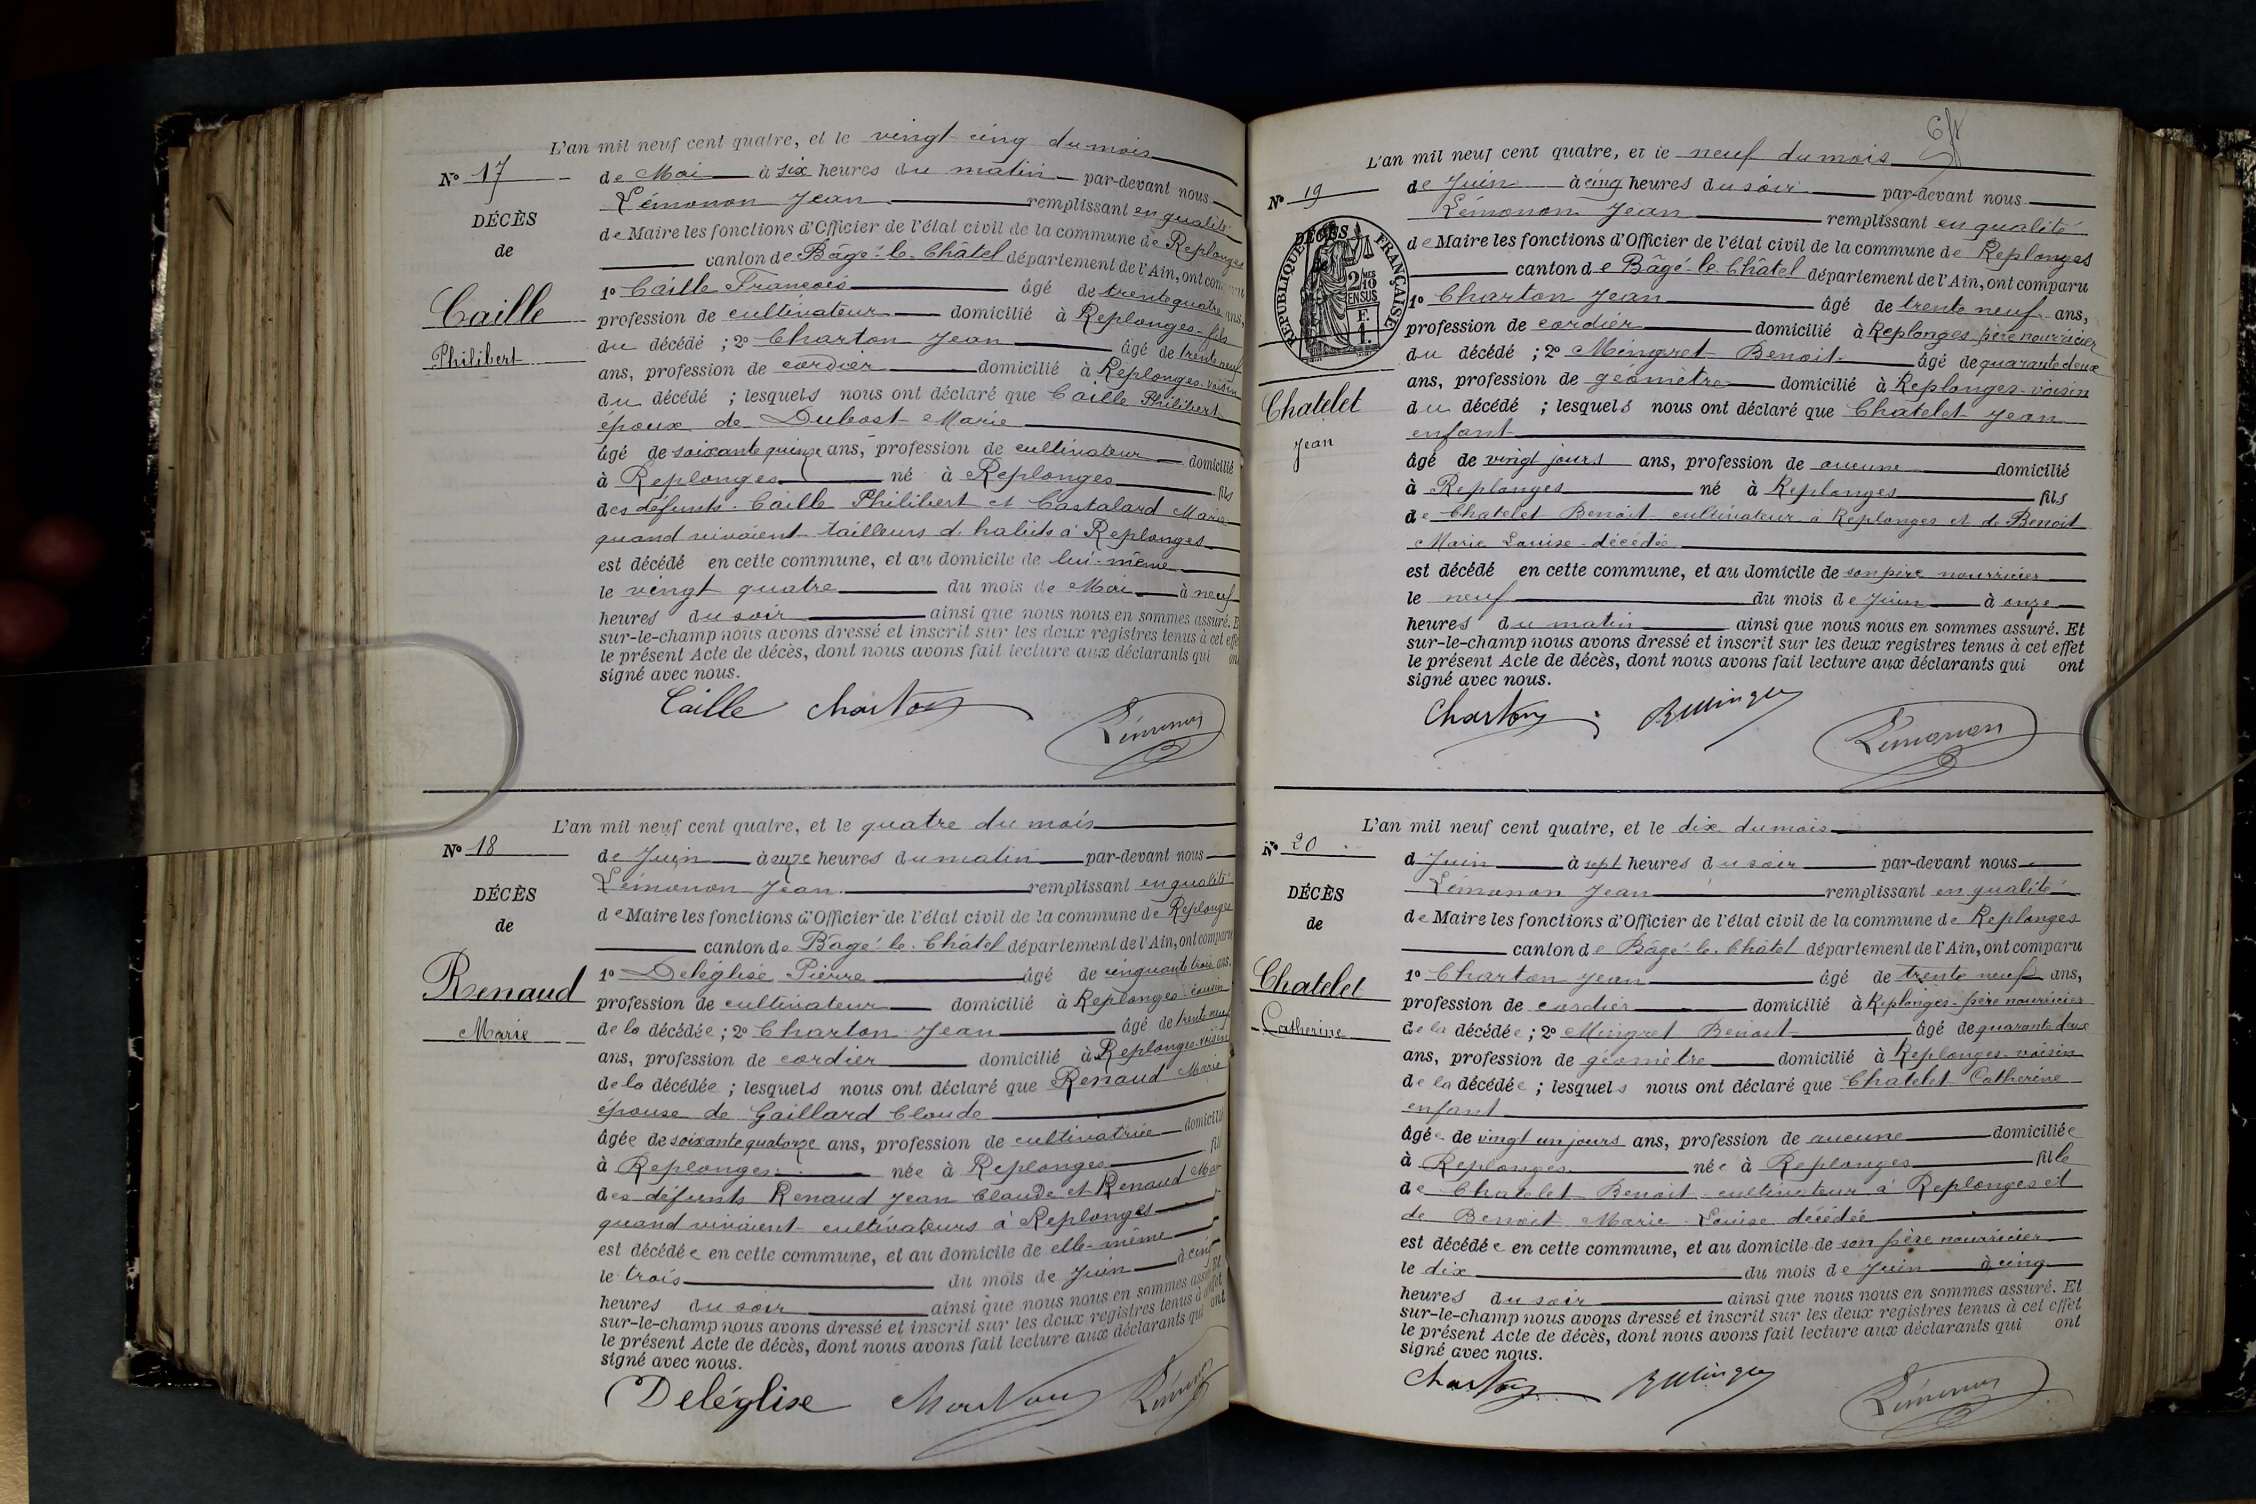 L'an mil neuf cent quatre, et le vingt cinq du mois
N° 17
de Mai à six heures du matin par-devant nous
Lémonon Jean remplissant en qualité
DÉCÈS
de Maire les fonctions d'Officier de l'état civil de la commune de Replonges
de
canton de Bâgé-le-Châtel département de l'Ain, ont
1° Caille François âgé de trente quatre ans,
Caille
profession de cultivateur domicilié à Replonges fils
Philibert
du décédé ; 2° Charton Jean âgé de trente neuf
ans, profession de cordier domicilié à Replonges voisin
du décédé ; lesquels nous ont déclaré que Caille Philibert
époux de Dubost Marie
âgé de soixante quinze ans, profession de cultivateur domicilié
à Replonges né à Replonges fils
des défunts Caille Philibert et Castalard Marie
quand vivaient tailleurs d'habits à Replonges
est décédé en cette commune, et au domicile de lui-même
le vingt quatre du mois de Mai à neuf
heures du soir ainsi que nous nous en sommes assuré. E
sur-le-champ nous avons dressé et inscrit sur les deux registres tenus à cet effe
le présent Acte de décès, dont nous avons fait lecture aux déclarants qui on
signé avec nous.
Caille Charton Lémonon
L'an mil neuf cent quatre, et le quatre du mois
N° 18
de Juin à onze heures du matin par-devant nous
Lémonon Jean remplissant en qualité
DÉCÈS
de Maire les fonctions d'Officier de l'état civil de la commune de Replonges
de
canton de Bâgé-le-Châtel département de l'Ain, ont comparu
1° Deléglise Pierre âgé de cinquante trois ans,
Renaud
profession de cultivateur domicilié à Replonges cousin
Marie
de la décédée ; 2° Charton Jean âgé de trente neuf
ans, profession de cordier domicilié à Replonges voisin
de la décédée ; lesquels nous ont déclaré que Renaud Marie
épouse de Gaillard Claude
âgée de soixante quatorze ans, profession de cultivatrice domicilié
à Replonges née à Replonges fil
des défunts Renaud Jean Claude et Renaud Mar
quand vivaient cultivateurs à Replonges
est décédée en cette commune, et au domicile de elle-même
le trois du mois de Juin à cinq
heures du soir ainsi que nous nous en sommes assuré. Et
sur-le-champ nous avons dressé et inscrit sur les deux registres tenus à cet effet
le présent Acte de décès, dont nous avons fait lecture aux déclarants qui ont
signé avec nous.
Deléglise Charton Lémonon
L'an mil neuf cent quatre, et le neuf du mois
N° 19
de Juin à cinq heures du soir par-devant nous
Lémonon Jean remplissant en qualité
DÉCÈS
RÉPUBLIQUE FRANÇAISE
2/10 MES EN SUS
F. 1.
de Maire les fonctions d'Officier de l'état civil de la commune de Replonges
canton de Bâgé-le-Châtel département de l'Ain, ont comparu
1° Charton Jean âgé de trente neuf ans,
profession de cordier domicilié à Replonges père nourricier
du décédé ; 2° Mingret Benoit âgé de quarante deux
Chatelet
ans, profession de géomètre domicilié à Replonges voisin
Jean
du décédé ; lesquels nous ont déclaré que Chatelet Jean
enfant
âgé de vingt jours ans, profession de aucune domicilié
à Replonges né à Replonges fils
de Chatelet Benoit cultivateur à Replonges et de Benoit
Marie Louise décédée
est décédé en cette commune, et au domicile de son père nourricier
le neuf du mois de Juin à onze
heures du matin ainsi que nous nous en sommes assuré. Et
sur-le-champ nous avons dressé et inscrit sur les deux registres tenus à cet effet
le présent Acte de décès, dont nous avons fait lecture aux déclarants qui ont
signé avec nous.
Charton BMingret Lémonon
L'an mil neuf cent quatre, et le dix du mois
N° 20
d Juin à sept heures du soir par-devant nous
Lémonon Jean remplissant en qualité
DÉCÈS
de Maire les fonctions d'Officier de l'état civil de la commune de Replonges
de
canton de Bâgé-le-Châtel département de l'Ain, ont comparu
1° Charton Jean âgé de trente neuf ans,
Chatelet
profession de cordier domicilié à Replonges père nourricier
Catherine
de la décédée ; 2° Mingret Benoit âgé de quarante deux
ans, profession de géomètre domicilié à Replonges voisin
de la décédée ; lesquels nous ont déclaré que Chatelet Catherine
enfant
âgée de vingt un jours ans, profession de aucune domiciliée
à Replonges née à Replonges fille
de Chatelet Benoit cultivateur à Replonges et
de Benoit Marie Louise décédée
est décédée en cette commune, et au domicile de son père nourricier
le dix du mois de Juin à cinq
heures du soir ainsi que nous nous en sommes assuré. Et
sur-le-champ nous avons dressé et inscrit sur les deux registres tenus à cet effet
le présent Acte de décès, dont nous avons fait lecture aux déclarants qui ont
signé avec nous.
Charton BMingret Lémonon